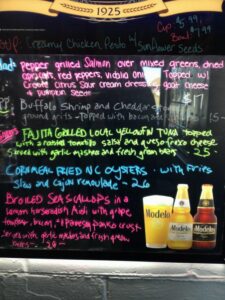 1925
Soup: Creamy Chicken Pesto w/ Sunflower Seeds
Cup 5.99
Bowl 7.99
Pepper grilled Salmon over mixed greens, dried
apricots, red peppers, vidalia onion. Topped w/
Creole Citrus Sour cream dressing, goat cheese
+ Pumpkin Seeds
Buffalo Shrimp and cheddar
ground grits - topped with bacon and
FAJITA GRILLED LOCAL YELLOWFIN TUNA topped
with a roasted tomatillo salsa and queso fresco cheese
Served with garlic mashed and fresh green beans 25
CORNMEAL FRIED NC OYSTERS · with fries
Slaw and cajun remoulade - 26
BROILED SEA SCALLOPS in a
lemon horseradish Aioli with grape
tomatoes, bacon, + Parmesan panko crust.
Served with garlic mashed and fresh green
beans - 30
Modelo
Modelo
Modelo